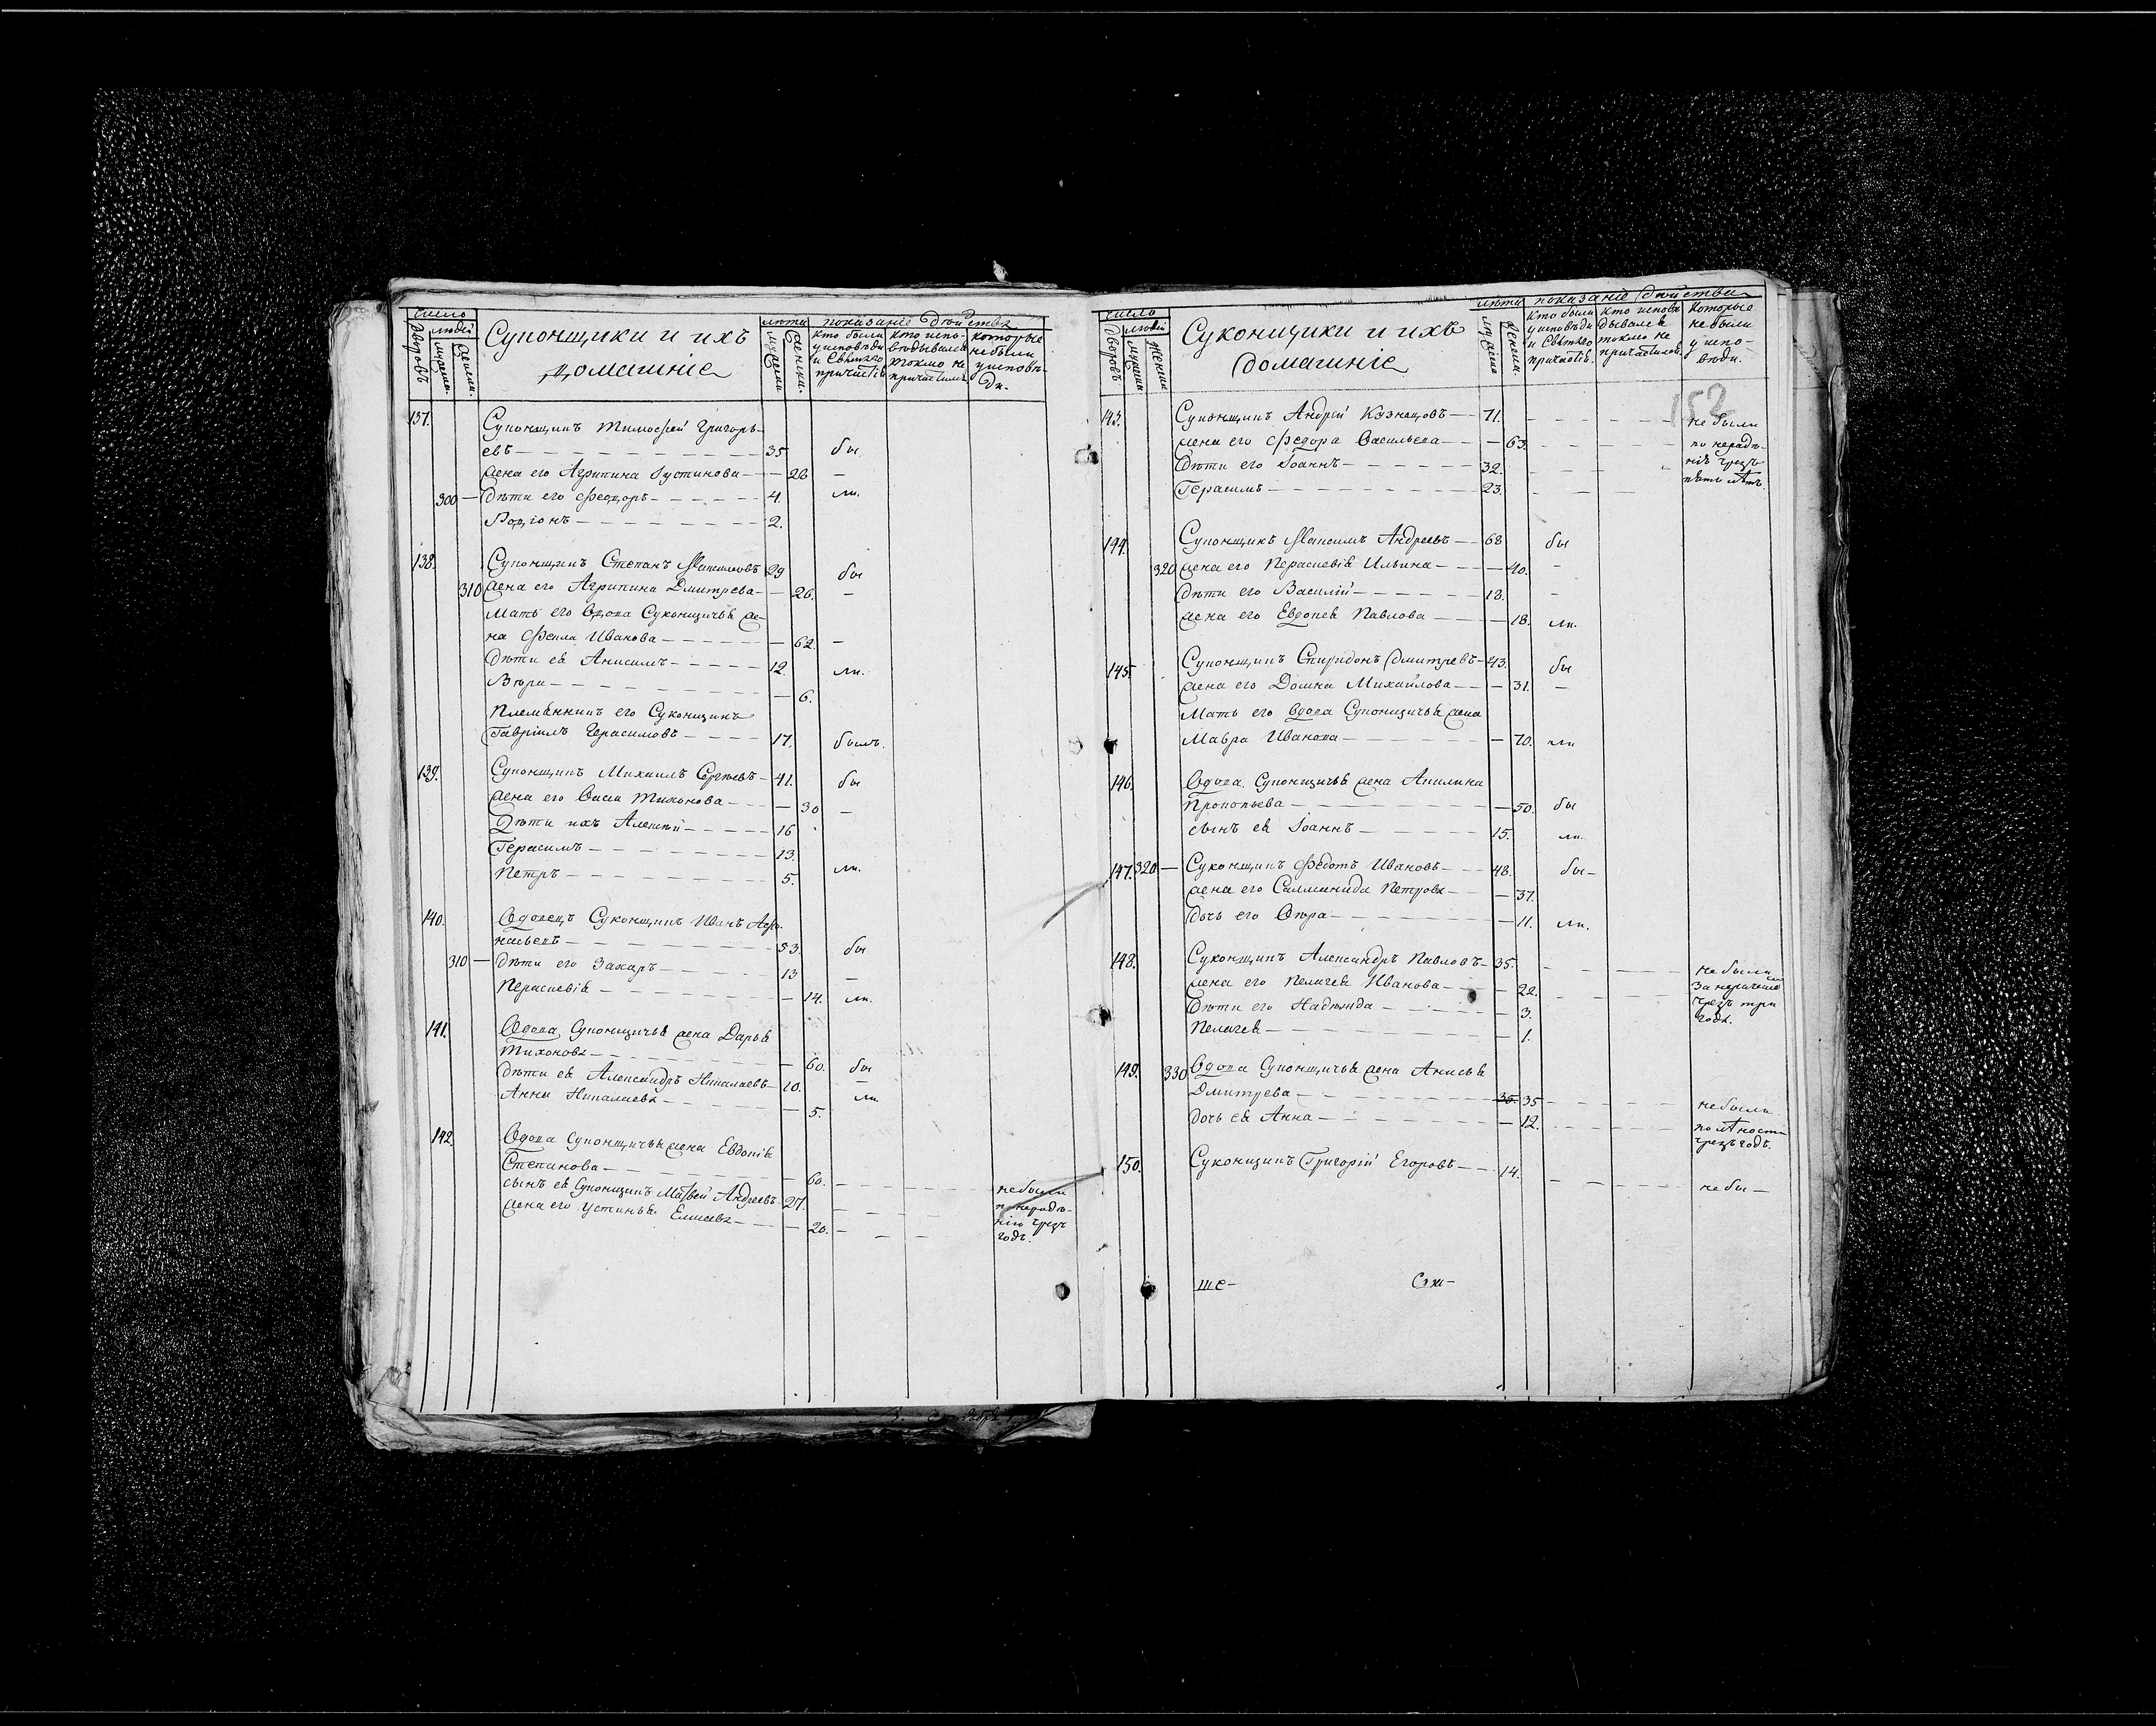 число
дворовъ
людей
мужеска
женска
Суконщики и ихъ
домашніе
лѣта
мужеска
женска
показаніе дѣйства
кто были
у исповѣди
и Святаго
причастія
кто испо-
вѣдывался
токмо не
причастился
которые
небыли
у исповѣ-
ди.
137. Суконщикъ Тимофей Григорь-
евъ 35 бы
жена его Агрипина Густинова 26 -
300 дѣти его Феодоръ 4. ли.
Родіонъ 2.
138. Суконщикъ Степанъ Максимовъ 29 бы
310 жена его Агрипина Дмитрева 26. -
Мать его вдова Суконщичья же-
на Фекла Иванова 62. -
дѣти ея Анисимъ 12. ли.
Вѣра 6.
Племянникъ его Суконщикъ
Гавріилъ Герасимовъ 17. былъ.
139. Суконщикъ Михаилъ Сергѣевъ 41. бы
жена его Васса Тихонова 30 -
Дѣти ихъ Алексѣй 16
Герасимъ 13.
Петръ 5. ли.
140. Вдовецъ Суконщикъ Иванъ Афа-
насьевъ 53. бы
310 дѣти его Захаръ 13 -
Параскевія 14. ли.
141. Вдова Суконщичья жена Дарья
Тихонова 60. бы
дѣти ея Александръ Николаевъ 10. -
Анна Николаева 5. ли
142. Вдова Суконщичья жена Евдокія
Степанова 60. небыли
сынъ ея Суконщикъ Матвей Андреевъ 27. по нерадѣ-
жена его Устинья Елисева 20. нію чрезъ
годъ.
число
дворовъ
людей
мужеска
женска
Суконщики и ихъ
домашніе
лѣта
мужеска
женска
показаніе дѣйства
кто были
у исповѣди
и Святаго
причастія
кто исповѣ
дывался
токмо не
причастился
Которые
небыли
у испо-
вѣди.
152
143. Суконщикъ Андрей Кузнецовъ 71. не были
жена его Федора Васильева 63. по нерадѣ-
дѣти его Іоаннъ 32. ніѣ чрезъ
Герасимъ 23. пять лѣтъ.
144. Суконщикъ Максимъ Андреевъ 68 бы
320 жена его Параскевія Ильина 40. -
дѣти его Василій 18. -
жена его Евдокея Павлова 18. ли.
145. Суконщикъ Спиридонъ Дмитревъ 43. бы
жена его Домна Михайлова 31. -
Мать его вдова Суконщичья жена
Мавра Иванова 70. ли
146. Вдова Суконщичья жена Акилина
Прокопьева 50. бы
сынъ ея Іоаннъ 15. ли.
147. 320 Суконщикъ Федотъ Ивановъ 48. бы-
жена его Саломонида Петрова 37.
дочь его Вѣра 11. ли.
148. Суконщикъ Александръ Павловъ 35. не были
жена его Пелагея Иванова 22. За
дѣти его Надежда 3. чрезъ три
Пелагея 1. года.
149. 330 Вдова Суконщичья жена Анисья
Дмитрева 35 35 не были.
дочь ея Анна 12. по лѣности
чрезъ годъ.
150. Суконщикъ Григорій Егоровъ 14. не бы-
ше- Сж-